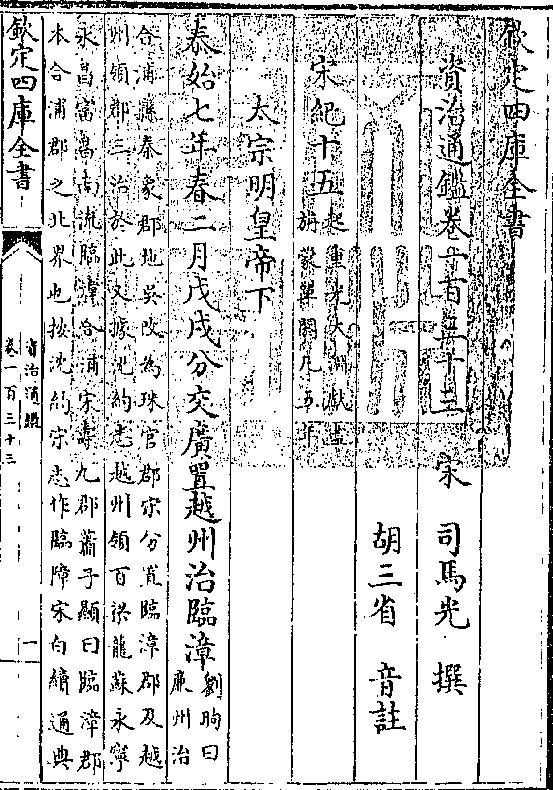 欽定四庫全書
資治通鑑卷一百三十三
宋 司馬光 撰
胡三省 音註
宋紀十五起重光大淵獻盡
旃蒙單閼凡五年
太宗明皇帝下
泰始七年春二月戊戌分交廣置越州治臨漳劉昫曰
廉州治
合浦縣秦象郡地吳改為珠官郡宋分置臨漳郡及越
州領郡三治於此又據沈約志越州領百梁龍蘇永寧
永昌富昌南流臨漳合浦宋壽九郡蕭子顯曰臨漳郡
本合浦郡之北界也按沈約宋志作臨障宋白續通典
欽定四庫全書
資治通鑑
卷一百三十三
一